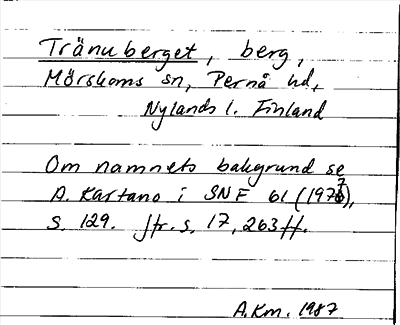 Tränuberget, berg,
Mörskoms sn, Pernå hd,
Nylands l. Finland
Om namnets bakgrund se
A. Kartano i SNF 61 (1977),
s. 129. Jfr. s. 17, 263 ff.
A.Km. 1987